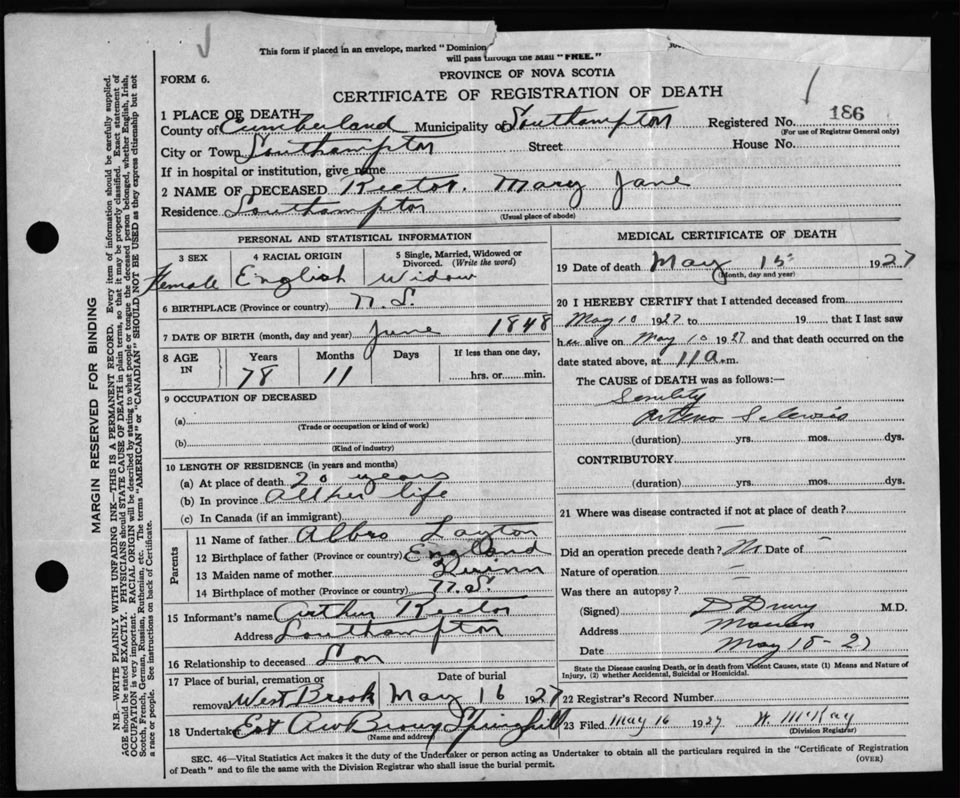 This form if placed in an envelope, marked "Dominion
will pass through the Mail "FREE."
FORM 6.
PROVINCE OF NOVA SCOTIA
CERTIFICATE OF REGISTRATION OF DEATH
1 PLACE OF DEATH
County of Cumberland Municipality of Southampton Registered No. 186
(For use of Registrar General only)
City or Town Southampton Street House No.
If in hospital or institution, give name
2 NAME OF DECEASED Rector. Mary Jane
Residence Southampton
(Usual place of abode)
PERSONAL AND STATISTICAL INFORMATION
3 SEX 4 RACIAL ORIGIN 5 Single, Married, Widowed or Divorced. (Write the word)
Female English Widow
6 BIRTHPLACE (Province or country) N.S.
7 DATE OF BIRTH (month, day and year) June 1848
8 AGE IN Years Months Days If less than one day,
78 11 hrs. or min.
9 OCCUPATION OF DECEASED
(a)
(Trade or occupation or kind of work)
(b)
(Kind of industry)
10 LENGTH OF RESIDENCE (in years and months)
(a) At place of death 20 years
(b) In province All her life
(c) In Canada (if an immigrant)
Parents
11 Name of father Albro Layton
12 Birthplace of father (Province or country) England
13 Maiden name of mother Quinn
14 Birthplace of mother (Province or country) N.S.
15 Informant's name Arthur Rector
Address Southampton
16 Relationship to deceased Son
17 Place of burial, cremation or removal West Brook Date of burial May 16 1927
18 Undertaker A W Brown Springhill
(Name and address)
MEDICAL CERTIFICATE OF DEATH
19 Date of death May 15 1927
(Month, day and year)
20 I HEREBY CERTIFY that I attended deceased from
May 10 1927 to 19 that I last saw
her alive on May 10 1927 and that death occurred on the
date stated above, at 11 a.m.
The CAUSE of DEATH was as follows:—
Senility
Arterio Sclerosis
(duration) yrs. mos. dys.
CONTRIBUTORY
(duration) yrs. mos. dys.
21 Where was disease contracted if not at place of death?
Did an operation precede death? No Date of
Nature of operation
Was there an autopsy?
(Signed) D Drury M.D.
Address Maccan
Date May 15-27
State the Disease causing Death, or in death from Violent Causes, state (1) Means and Nature of
Injury, (2) whether Accidental, Suicidal or Homicidal.
22 Registrar's Record Number
23 Filed May 16 1927 W. McKay
(Division Registrar)
SEC. 46—Vital Statistics Act makes it the duty of the Undertaker or person acting as Undertaker to obtain all the particulars required in the "Certificate of Registration
of Death" and to file the same with the Division Registrar who shall issue the burial permit.
(OVER)
MARGIN RESERVED FOR BINDING
N.B.—WRITE PLAINLY WITH UNFADING INK—THIS IS A PERMANENT RECORD. Every item of information should be carefully supplied.
AGE should be stated EXACTLY. PHYSICIANS should STATE CAUSE OF DEATH in plain terms, so that it may be properly classified. Exact statement of
OCCUPATION is very important. RACIAL ORIGIN will be described by stating to what people or tongue the deceased person belonged, whether English, Irish,
Scotch, French, German, Russian, Ruthenian, etc. The terms "AMERICAN" or "CANADIAN" SHOULD NOT BE USED as they express citizenship but not
a race or people. See instructions on back of Certificate.